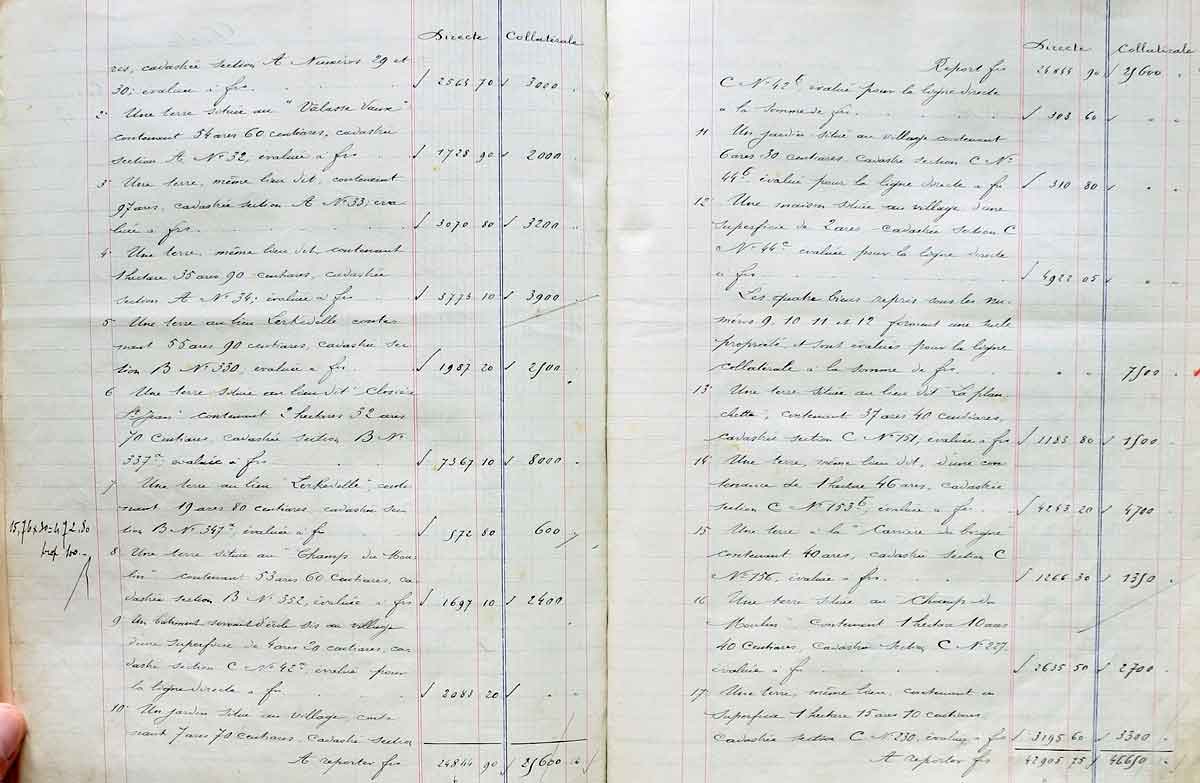 Directe Collatérale
res, cadastrée section A Numéros 29 et
30; évaluée à frs √ 2563 70 √ 3000
2 Une terre située au "Valasse Vaux"
contenant 54 ares 60 centiares, cadastrée
section A No 32, évaluée à frs √ 1728 90 √ 2000
3 Une terre, même lieu dit, contenant
97 ares, cadastrée section A No 33; éva-
luée à frs √ 3070 80 √ 3200
4 Une terre, même lieu dit contenant
1 hectare 35 ares 90 centiares, cadastrée
section A No 34; évaluée à frs √ 3773 10 √ 3900
5 Une terre au lieu Lerkevelle, conte-
nant 55 ares 90 centiares, cadastrée sec-
tion B No 330, évaluée à frs √ 1987 20 √ 2500
6 Une terre située au lieu dit
contenant 2 hectares 32 ares
70 centiares, cadastrée section B No
337a; évaluée à frs √ 7367 10 √ 8000
7 Une terre au lieu "Lerkevelle", conte-
nant 19 ares 80 centiares, cadastrée sec-
15,76 x 30 = 472.80
tion B No 347a, évaluée à frs √ 572 80 600
8 Une terre située au "Champs du Mou-
lin" contenant 53 ares 60 centiares, ca-
dastrée section B No 352, évaluée à frs √ 1697 10 √ 2400
9 Un bâtiment servant d'école sis au village
d'une superficie de 4 ares 20 centiares, ca-
dastré section C No 42a, évalué pour
la ligne directe à frs √ 2083 20 √
10 Un jardin situé au village, conte-
nant 7 ares 70 centiares, cadastré section
A reporter frs 24844 90 √ 25600
Directe Collatérale
Report frs 24844 90 √ 25600
C No 42b, évalué pour la ligne directe
à la somme de frs √ 303 60
11 Un jardin situé au village contenant
6 ares 30 centiares, cadastré section C No
44b, évalué pour la ligne directe à frs √ 310 80 √
12 Une maison située au village d'une
superficie de 2 ares cadastrée section C
No 44c évaluée pour la ligne directe
à frs √ 4922 05 √
Les quatre biens repris sous les nu-
méros 9, 10, 11 et 12 forment une seule
propriété et sont évalués pour la ligne
collatérale à la somme de frs 7500
13 Une terre située au lieu dit "La plan-
chette", contenant 37 ares 40 centiares,
cadastrée section C No 151, évaluée à frs √ 1183 80 √ 1500
14 Une terre, même lieu dit, d'une con-
tenance de 1 hectare 46 ares, cadastrée
section C No 153b, évaluée à frs √ 4243 20 √ 4700
15 Une terre à la "Carrière du borgne"
contenant 40 ares, cadastrée section C
No 156, évaluée à frs √ 1266 30 √ 1350
16 Une terre située au "Champs du
Moulin" contenant 1 hectare 10 ares
40 centiares, cadastrée section C No 227,
évaluée à frs √ 2635 50 √ 2700
17 Une terre, même lieu, contenant en
superficie 1 hectare 15 ares 10 centiares,
cadastrée section C No 230, évaluée à frs √ 3195 60 √ 3300
A reporter frs 42905 75 √ 46650